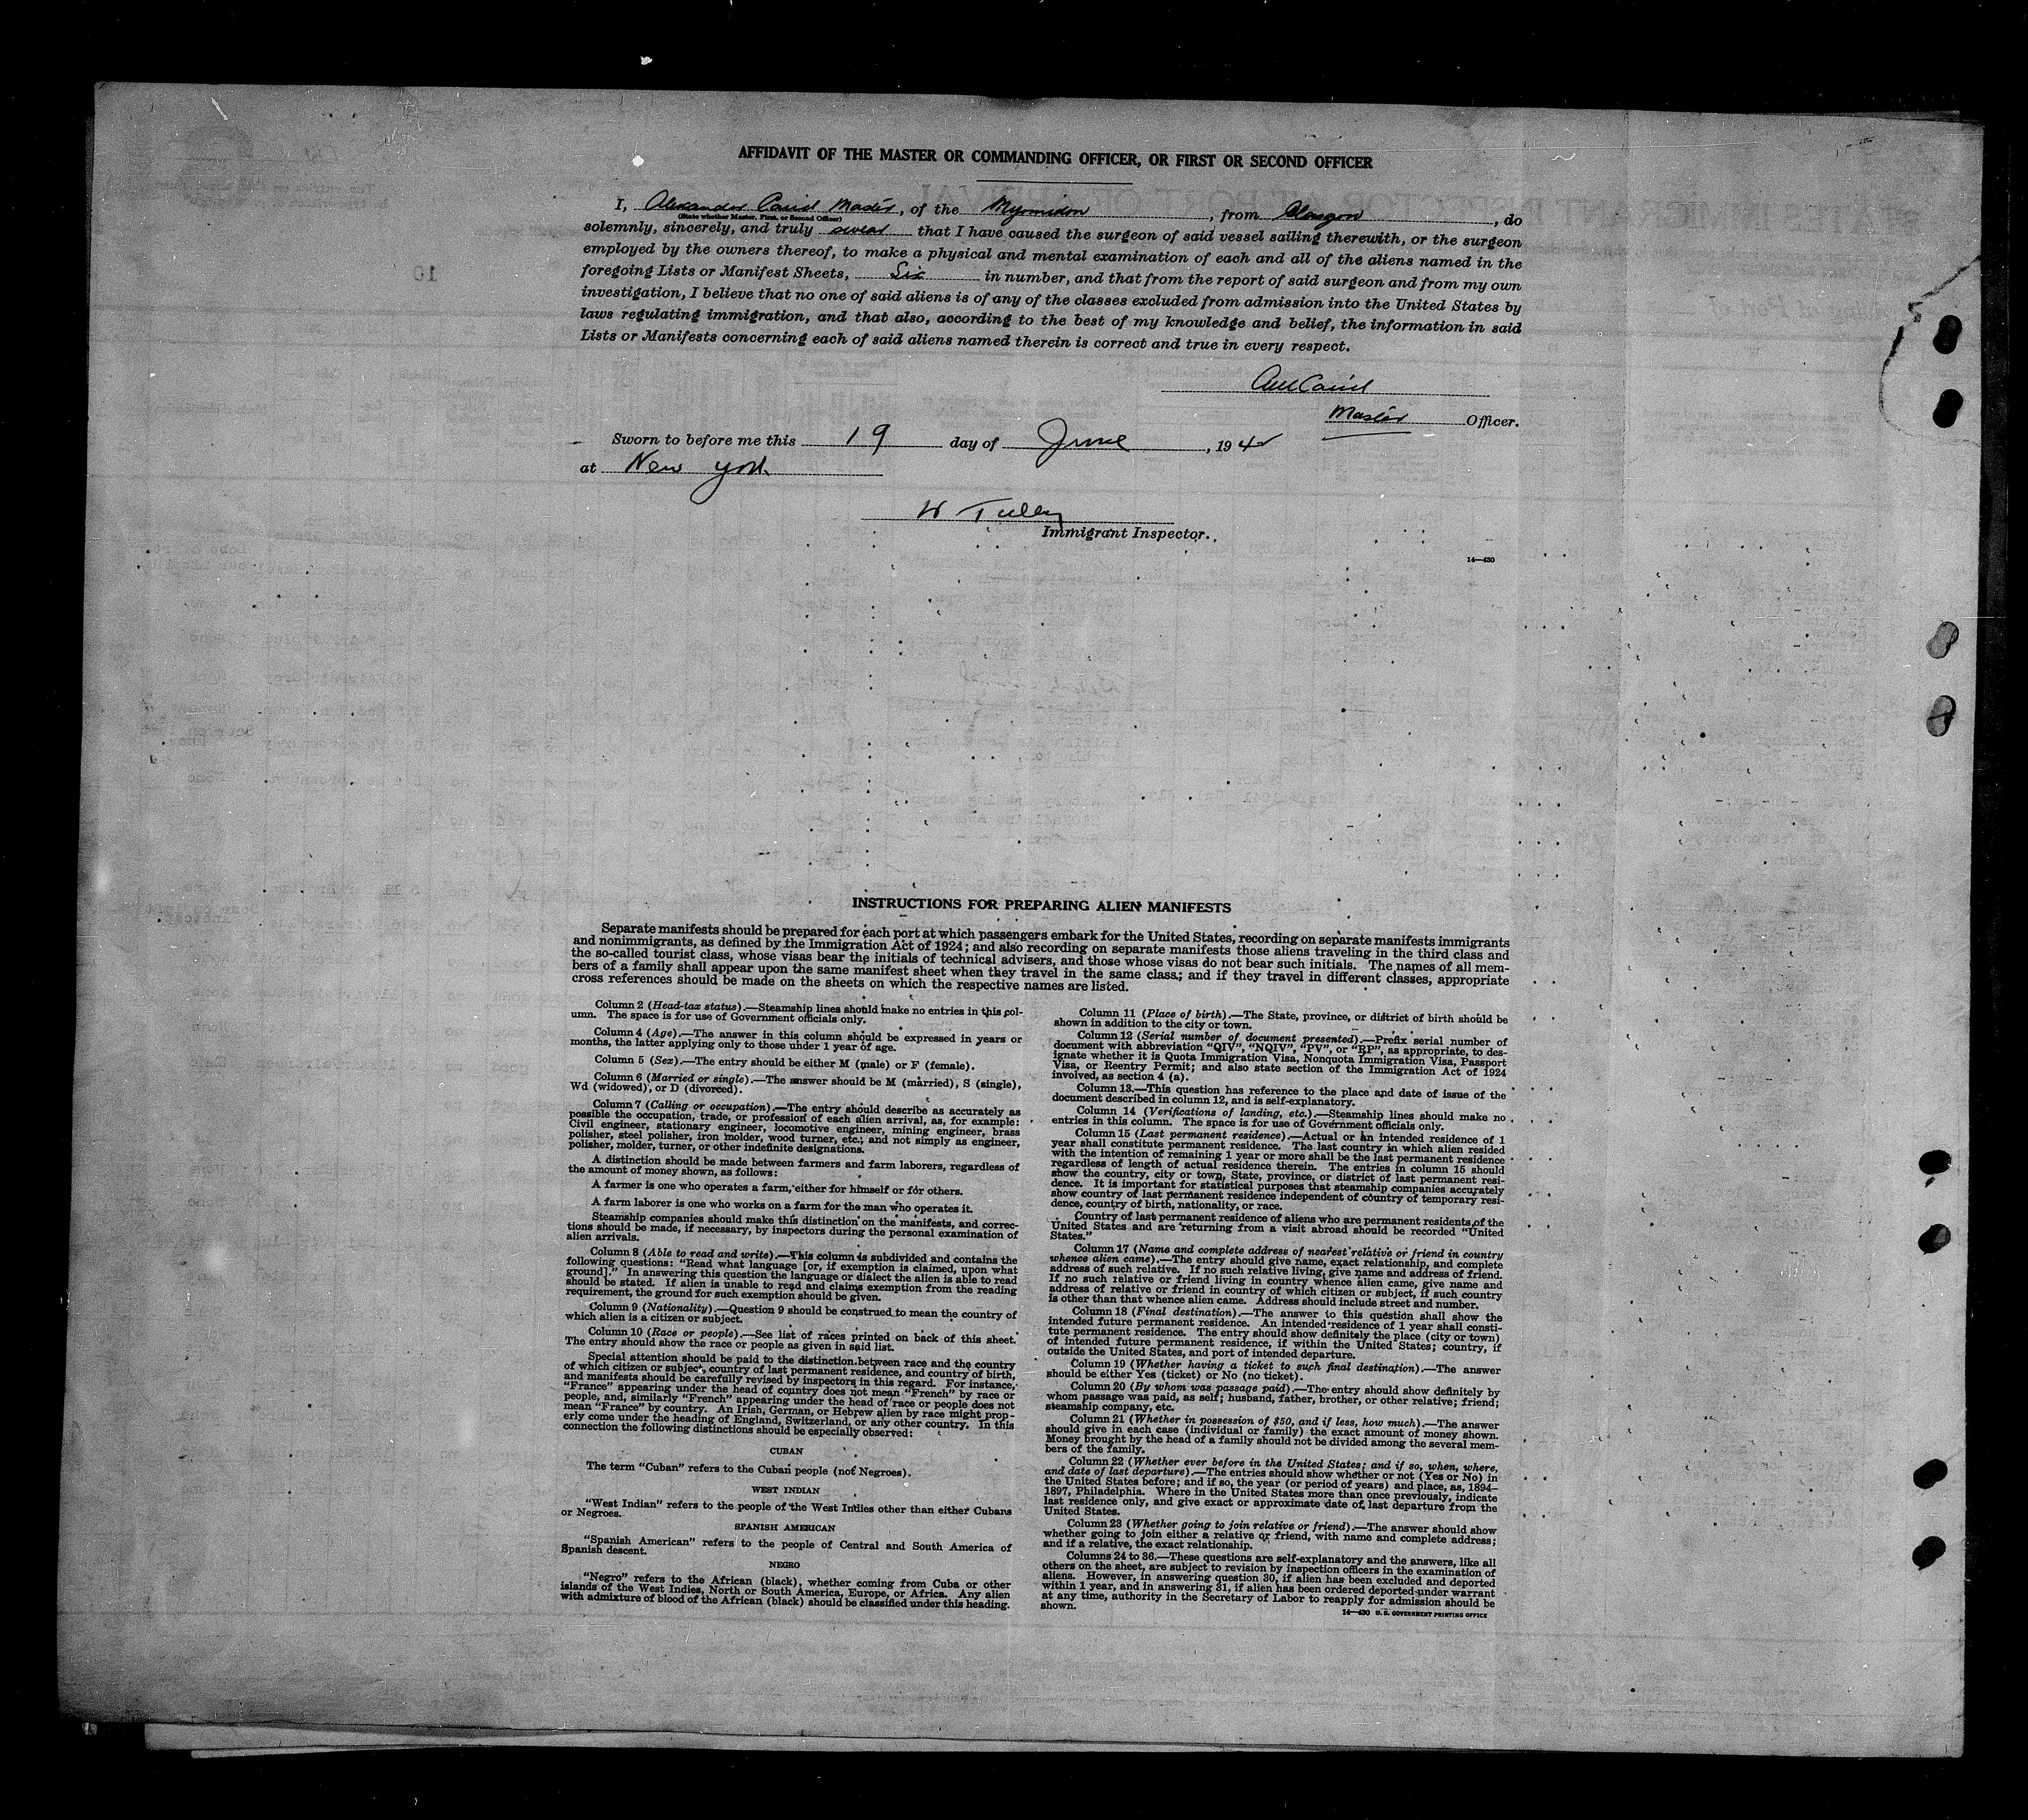 AFFIDAVIT OF THE MASTER OR COMMANDING OFFICER, OR FIRST OR SECOND OFFICER
I, Alexander Caird Master, of the Myrmidon, from Glasgow, do
(State whether Master, First, or Second Officer)
solemnly, sincerely, and truly swear that I have caused the surgeon of said vessel sailing therewith, or the surgeon
employed by the owners thereof, to make a physical and mental examination of each and all of the aliens named in the
foregoing Lists or Manifest Sheets, Six in number, and that from the report of said surgeon and from my own
investigation, I believe that no one of said aliens is of any of the classes excluded from admission into the United States by
laws regulating immigration, and that also, according to the best of my knowledge and belief, the information in said
Lists or Manifests concerning each of said aliens named therein is correct and true in every respect.
Caird
Master Officer.
Sworn to before me this 19 day of June, 194
at New York
W Tully
Immigrant Inspector.
14—430
INSTRUCTIONS FOR PREPARING ALIEN MANIFESTS
Separate manifests should be prepared for each port at which passengers embark for the United States, recording on separate manifests immigrants
and nonimmigrants, as defined by the Immigration Act of 1924; and also recording on separate manifests those aliens traveling in the third class and
the so-called tourist class, whose visas bear the initials of technical advisers, and those whose visas do not bear such initials. The names of all mem-
bers of a family shall appear upon the same manifest sheet when they travel in the same class; and if they travel in different classes, appropriate
cross references should be made on the sheets on which the respective names are listed.
Column 2 (Head-tax status).—Steamship lines should make no entries in this col-
umn. The space is for use of Government officials only.
Column 4 (Age).—The answer in this column should be expressed in years or
months, the latter applying only to those under 1 year of age.
Column 5 (Sex).—The entry should be either M (male) or F (female).
Column 6 (Married or single).—The answer should be M (married), S (single),
Wd (widowed), or D (divorced).
Column 7 (Calling or occupation).—The entry should describe as accurately as
possible the occupation, trade, or profession of each alien arrival, as, for example:
Civil engineer, stationary engineer, locomotive engineer, mining engineer, brass
polisher, steel polisher, iron molder, wood turner, etc.; and not simply as engineer,
polisher, molder, turner, or other indefinite designations.
A distinction should be made between farmers and farm laborers, regardless of
the amount of money shown, as follows:
A farmer is one who operates a farm, either for himself or for others.
A farm laborer is one who works on a farm for the man who operates it.
Steamship companies should make this distinction on the manifests, and correc-
tions should be made, if necessary, by inspectors during the personal examination of
alien arrivals.
Column 8 (Able to read and write).—This column is subdivided and contains the
following questions: “Read what language [or, if exemption is claimed, upon what
ground].” In answering this question the language or dialect the alien is able to read
should be stated. If alien is unable to read and claims exemption from the reading
requirement, the ground for such exemption should be given.
Column 9 (Nationality).—Question 9 should be construed to mean the country of
which alien is a citizen or subject.
Column 10 (Race or people).—See list of races printed on back of this sheet.
The entry should show the race or people as given in said list.
Special attention should be paid to the distinction between race and the country
of which citizen or subject, country of last permanent residence, and country of birth,
and manifests should be carefully revised by inspectors in this regard. For instance,
“France” appearing under the head of country does not mean “French” by race or
people, and, similarly “French” appearing under the head of race or people does not
mean “France” by country. An Irish, German, or Hebrew alien by race might prop-
erly come under the heading of England, Switzerland, or any other country. In this
connection the following distinctions should be especially observed:
CUBAN
The term “Cuban” refers to the Cuban people (not Negroes).
WEST INDIAN
“West Indian” refers to the people of the West Indies other than either Cubans
or Negroes.
SPANISH AMERICAN
“Spanish American” refers to the people of Central and South America of
Spanish descent.
NEGRO
“Negro” refers to the African (black), whether coming from Cuba or other
islands of the West Indies, North or South America, Europe, or Africa. Any alien
with admixture of blood of the African (black) should be classified under this heading.
Column 11 (Place of birth).—The State, province, or district of birth should be
shown in addition to the city or town.
Column 12 (Serial number of document presented).—Prefix serial number of
document with abbreviation “QIV”, “NQIV”, “PV”, or “RP”, as appropriate, to des-
ignate whether it is Quota Immigration Visa, Nonquota Immigration Visa, Passport
Visa, or Reentry Permit; and also state section of the Immigration Act of 1924
involved, as section 4 (a).
Column 13.—This question has reference to the place and date of issue of the
document described in column 12, and is self-explanatory.
Column 14 (Verifications of landing, etc.).—Steamship lines should make no
entries in this column. The space is for use of Government officials only.
Column 15 (Last permanent residence).—Actual or an intended residence of 1
year shall constitute permanent residence. The last country in which alien resided
with the intention of remaining 1 year or more shall be the last permanent residence
regardless of length of actual residence therein. The entries in column 15 should
show the country, city or town, State, province, or district of last permanent resi-
dence. It is important for statistical purposes that steamship companies accurately
show country of last permanent residence independent of country of temporary resi-
dence, country of birth, nationality, or race.
Country of last permanent residence of aliens who are permanent residents of the
United States and are returning from a visit abroad should be recorded “United
States.”
Column 17 (Name and complete address of nearest relative or friend in country
whence alien came).—The entry should give name, exact relationship, and complete
address of such relative. If no such relative living, give name and address of friend.
If no such relative or friend living in country whence alien came, give name and
address of relative or friend in country of which citizen or subject, if such country
is other than that whence alien came. Address should include street and number.
Column 18 (Final destination).—The answer to this question shall show the
intended future permanent residence. An intended residence of 1 year shall consti-
tute permanent residence. The entry should show definitely the place (city or town)
of intended future permanent residence, if within the United States; country, if
outside the United States, and port of intended departure.
Column 19 (Whether having a ticket to such final destination).—The answer
should be either Yes (ticket) or No (no ticket).
Column 20 (By whom was passage paid).—The entry should show definitely by
whom passage was paid, as self; husband, father, brother, or other relative; friend;
steamship company, etc.
Column 21 (Whether in possession of $50, and if less, how much).—The answer
should give in each case (individual or family) the exact amount of money shown.
Money brought by the head of a family should not be divided among the several mem-
bers of the family.
Column 22 (Whether ever before in the United States; and if so, when, where,
and date of last departure).—The entries should show whether or not (Yes or No) in
the United States before; and if so, the year (or period of years) and place, as, 1894–
1897, Philadelphia. Where in the United States more than once previously, indicate
last residence only, and give exact or approximate date of last departure from the
United States.
Column 23 (Whether going to join relative or friend).—The answer should show
whether going to join either a relative or friend, with name and complete address;
and if a relative, the exact relationship.
Columns 24 to 36.—These questions are self-explanatory and the answers, like all
others on the sheet, are subject to revision by inspection officers in the examination of
aliens. However, in answering question 30, if alien has been excluded and deported
within 1 year, and in answering 31, if alien has been ordered deported under warrant
at any time, authority in the Secretary of Labor to reapply for admission should be
shown.
14—430 U. S. GOVERNMENT PRINTING OFFICE